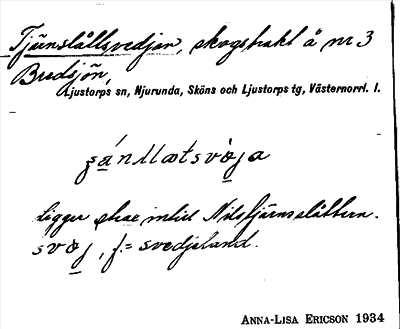 Tjärnslåttsvedjan, skogstrakt å nr 3
Bredsjön,
Ljustorps sn, Njurunda, Sköns och Ljustorps tg, Västernorrl. l.
ligger strax intill Nilstjärnsslåttern.
f. = svedjeland.
ANNA-LISA ERICSON 1934